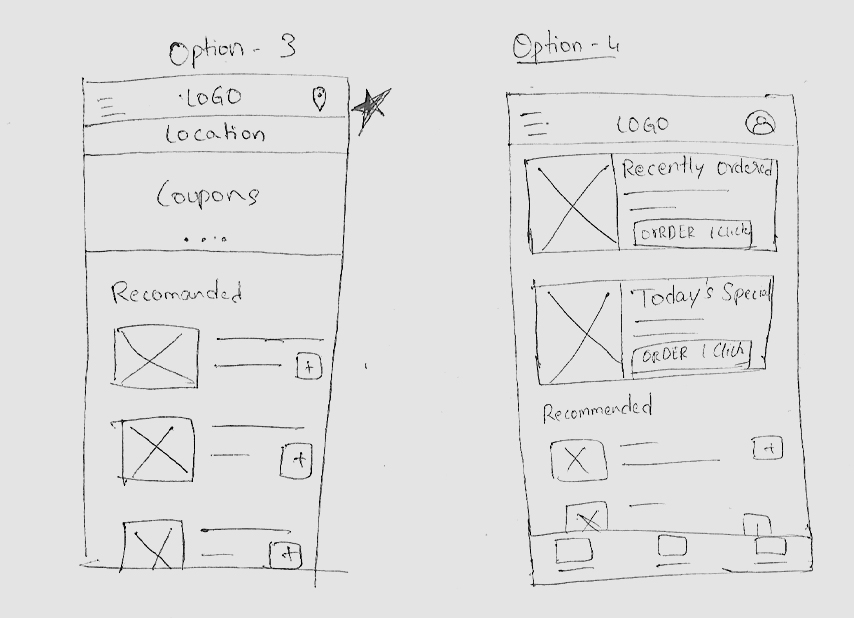 Option - 3
LOGO
Location
Coupons
Recomanded
+
+
+
Option - 4
LOGO
Recently Ordered
ORDER 1 Click
Today's Special
ORDER 1 Click
Recommended
+